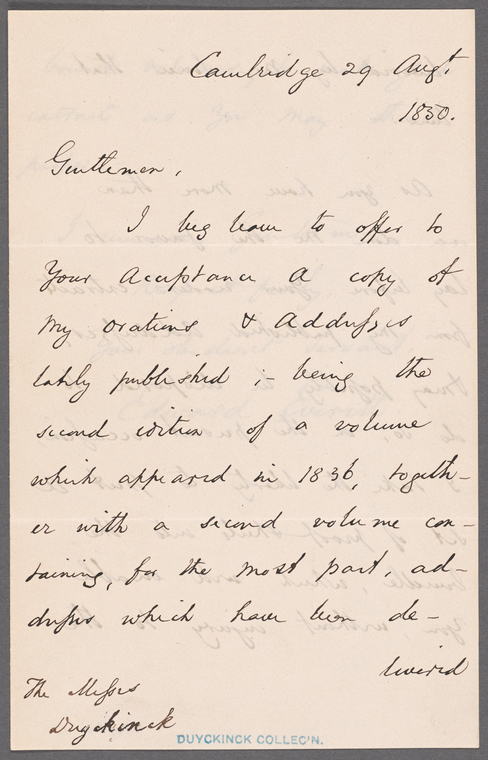 Cambridge 29 Augt.
1850.
Gentlemen,
I beg leave to offer to
your acceptance a copy of
my orations & addresses
lately published ;- being the
second edition of a volume
which appeared in 1836, togeth-
er with a second volume con-
taining, for the most part, ad-
dresses which have been de-
livered
The Messrs
Duyckinck
DUYCKINCK COLLEC'N.